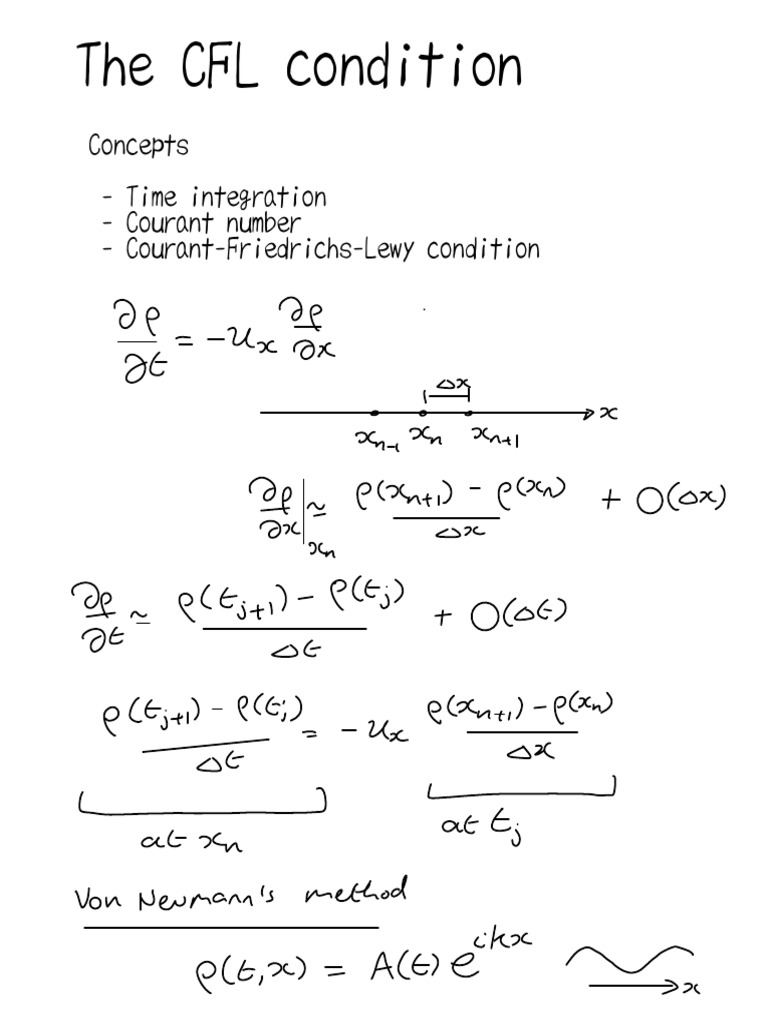 The CFL condition
Concepts
- Time integration
- Courant number
- Courant-Friedrichs-Lewy condition
∂ρ/∂t = -u_x ∂ρ/∂x
Δx
x
x_{n-1} x_n x_{n+1}
∂ρ/∂x|_{x_n} ≃ (ρ(x_{n+1}) - ρ(x_n))/Δx + O(Δx)
∂ρ/∂t ≃ (ρ(t_{j+1}) - ρ(t_j))/Δt + O(Δt)
(ρ(t_{j+1}) - ρ(t_j))/Δt = -u_x (ρ(x_{n+1}) - ρ(x_n))/Δx
at x_n at t_j
Von Neumann's method
ρ(t,x) = A(t) e^{ikx}
x